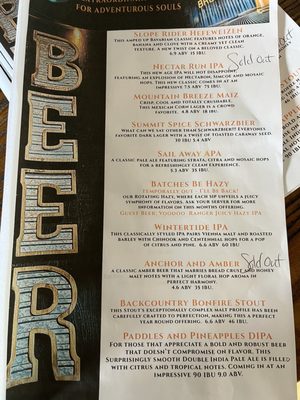 FOR ADVENTUROUS SOULS
BEER
Slope Rider Hefeweizen
This amped up Bavarian classic features notes of orange,
banana and clove with a creamy yet clean
texture. A new twist on a beloved classic.
6.9 ABV 15 IBU.
Sold Out
Nectar Run IPA
This new age IPA will not disappoint,
featuring an explosion of Nectaron, Simcoe and Mosaic
hops. This new classic comes in at an
impressive 7.5 ABV 75 IBU.
Mountain Breeze Maiz
Crisp, cool and totally crushable.
This Mexican corn lager is a crowd
favorite. 4.8 ABV 18 IBU.
Summit Spice Schwarzbier
What can we say other than Schwarzbier!! Everyones
favorite dark lager with a twist of toasted caraway seed.
30 IBU 5.4 ABV
Sail Away APA
A classic pale ale featuring Strata, Citra and Mosaic hops
for a refreshingly clean experience.
5.3 ABV 35 IBU.
Batches Be Hazy
Temporally Out - I'll Be Back!
Our rotating hazy, where each sip unveils a juicy
symphony of flavors. Ask your server for more
information on this months offering.
Guest Beer: Voodoo Ranger Juicy Haze IPA
Wintertide IPA
This classically styled IPA pairs Vienna malt and roasted
barley with Chinook and Centennial hops for a pop
of citrus and pine. 6.6 ABV 60 IBU
Sold Out
Anchor and Amber
A classic amber beer that marries bread crust and honey
malt notes with a light floral hop aroma in
perfect harmony.
4.6 ABV 35 IBU.
Backcountry Bonfire Stout
This Stout's exceptionally complex malt profile has been
carefully crafted to perfection, making this a perfect
year round offering. 6.6 ABV 46 IBU.
Paddles and Pineapples DIPA
For those that appreciate a bold and robust beer
that doesn't compromise on flavor. This
surprisingly smooth Double India Pale Ale is filled
with citrus and tropical notes. Coming in at an
impressive 90 IBU 9.0 ABV.